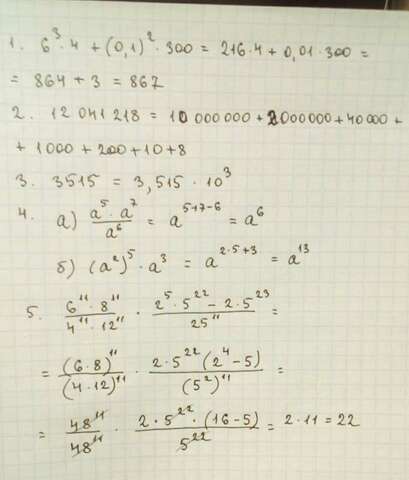 1. 6³·4 + (0,1)²·300 = 216·4 + 0,01·300 =
= 864 + 3 = 867
2. 12 041 218 = 10 000 000 + 2000000 + 40000 +
+ 1000 + 200 + 10 + 8
3. 3515 = 3,515 · 10³
4. а) (a⁵ · a⁷)/a⁶ = a⁵⁺⁷⁻⁶ = a⁶
б) (a²)⁵ · a³ = a²·⁵⁺³ = a¹³
5. (6¹¹ · 8¹¹)/(4¹¹ · 12¹¹) · (2⁵ · 5²² − 2 · 5²³)/25¹¹ =
= (6·8)¹¹/(4·12)¹¹ · (2·5²²(2⁴ − 5))/(5²)¹¹ =
= 48¹¹/48¹¹ · (2 · 5²² · (16 − 5))/5²² = 2·11 = 22